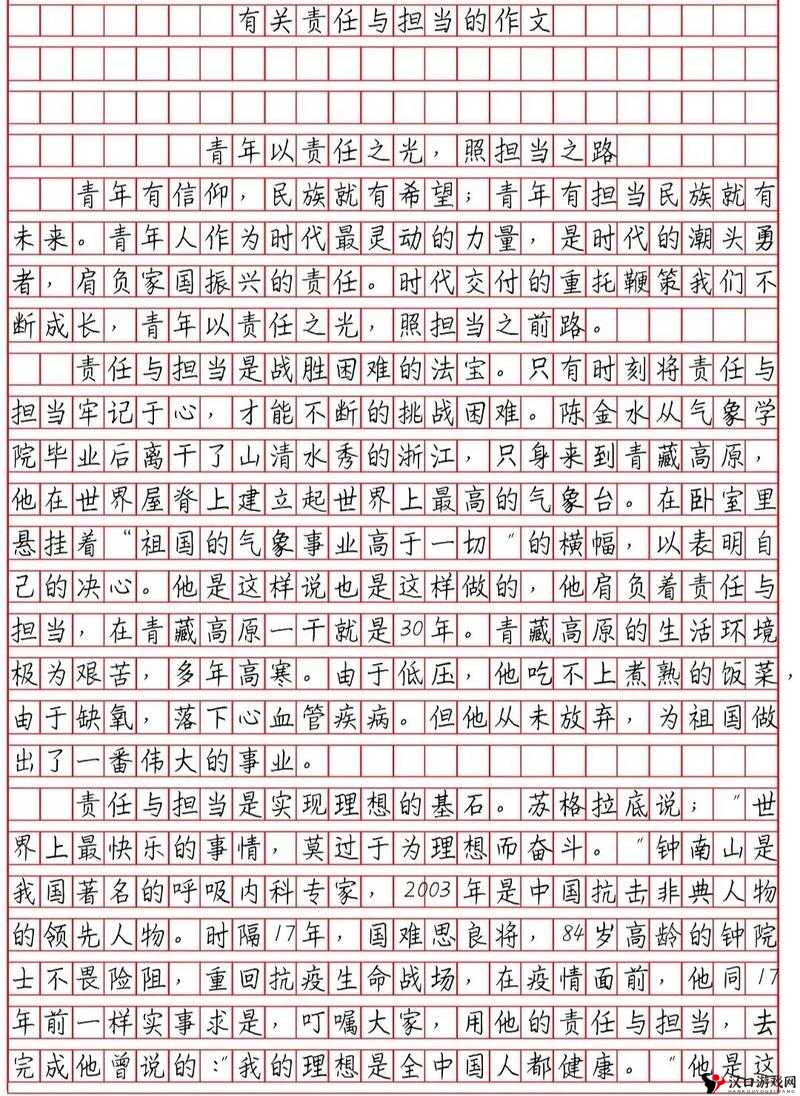 有关责任与担当的作文
青年以责任之光，照担当之路
青年有信仰，民族就有希望；青年有担当民族就有
未来。青年人作为时代最灵动的力量，是时代的潮头勇
者，肩负家国振兴的责任。时代交付的重托鞭策我们不
断成长，青年以责任之光，照担当之前路。
责任与担当是战胜困难的法宝。只有时刻将责任与
担当牢记于心，才能不断的挑战困难。陈金水从气象学
院毕业后离干了山清水秀的浙江，只身来到青藏高原，
他在世界屋脊上建立起世界上最高的气象台。在卧室里
悬挂着“祖国的气象事业高于一切”的横幅，以表明自
己的决心。他是这样说也是这样做的，他肩负着责任与
担当，在青藏高原一干就是30年。青藏高原的生活环境
极为艰苦，多年高寒。由于低压，他吃不上煮熟的饭菜，
由于缺氧，落下心血管疾病。但他从未放弃，为祖国做
出了一番伟大的事业。
责任与担当是实现理想的基石。苏格拉底说；“世
界上最快乐的事情，莫过于为理想而奋斗。“钟南山是
我国著名的呼吸内科专家，2003年是中国抗击非典人物
的领先人物。时隔17年，国难思良将，84岁高龄的钟院
士不畏险阻，重回抗疫生命战场，在疫情面前，他同17
年前一样实事求是，叮嘱大家，用他的责任与担当，去
完成他曾说的：“我的理想是全中国人都健康。“他是这
汉口游戏网
HANKOUYOUXIWANG